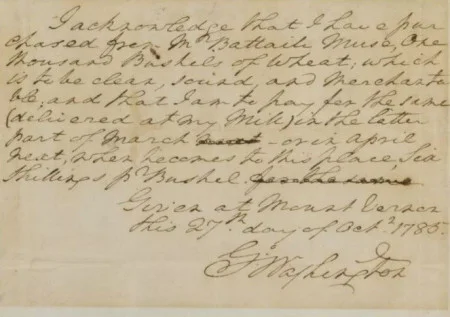 I acknowledge that I have pur
chased from Mr. Battaile Muse, One
thousand Bushels of Wheat; which
is to be clean, sound, and Merchanta
ble; and that I am to pay for the same
(delivered at my Mill) in the latter
part of March next - or in April
next, when he comes to this place Six
Shillings pr. Bushel for the same
Given at Mount Vernon
this 27th. day of Octr. 1785.
Go: Washington